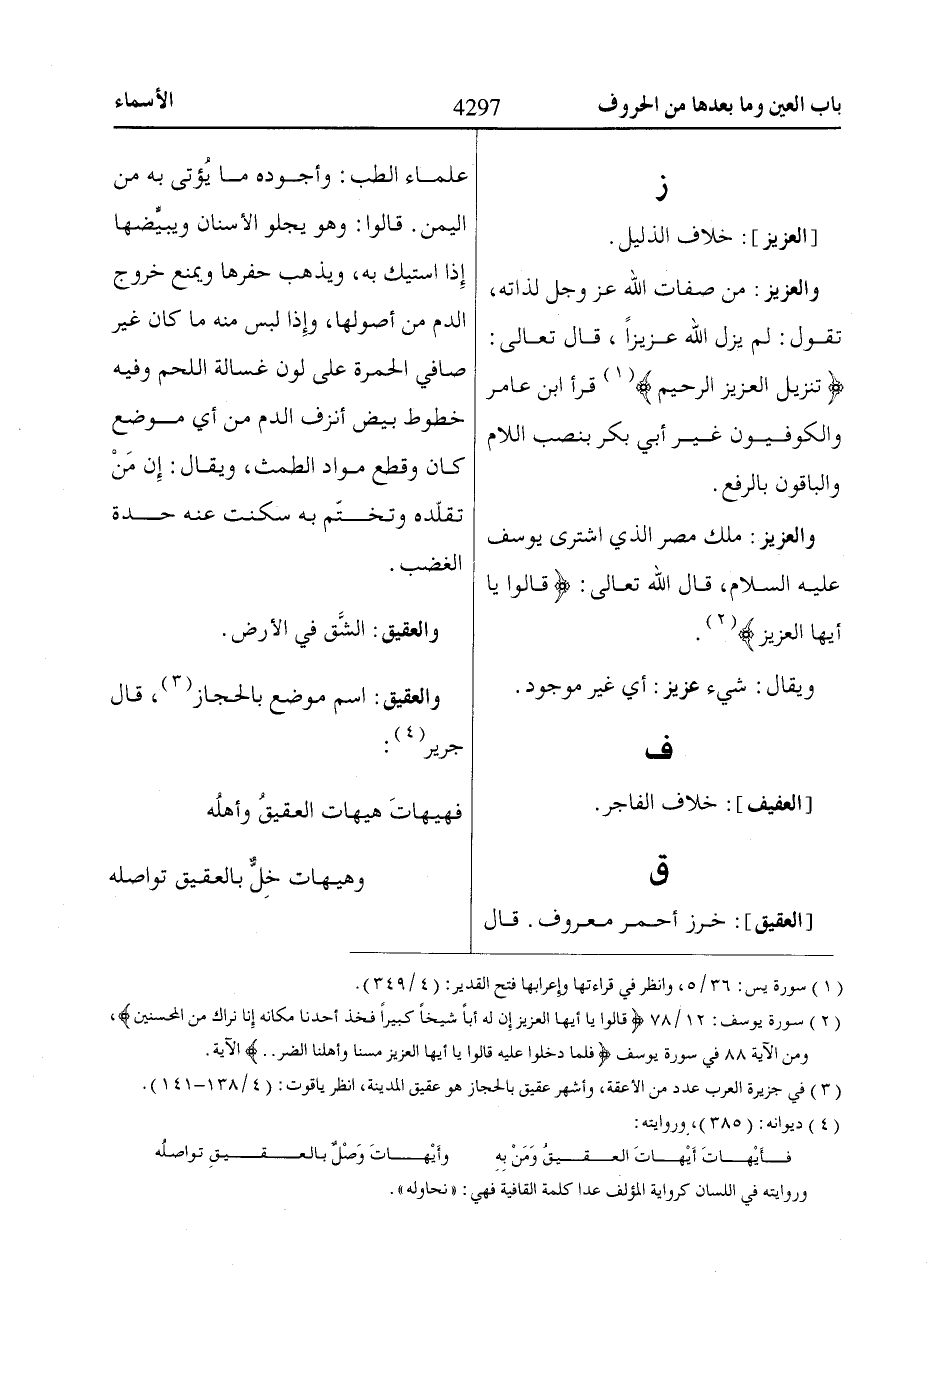 باب العين وما بعدها من الحروف
4297
الأسماء
ز
[العزيز]: خلاف الذليل.
والعزيز: من صفات الله عز وجل لذاته،
تقول: لم يزل الله عزيزاً ، قال تعالى:
﴿تنزيل العزيز الرحيم﴾(١) قرأ ابن عامر
والكوفيون غير أبي بكر بنصب اللام
والباقون بالرفع.
والعزيز: ملك مصر الذي اشترى يوسف
عليه السلام، قال الله تعالى: ﴿قالوا يا
أيها العزيز﴾(٢).
ويقال: شيء عزيز: أي غير موجود.
ف
[العفيف]: خلاف الفاجر.
ق
[العقيق]: خرز أحمر معروف. قال
علماء الطب: وأجوده ما يُؤتى به من
اليمن. قالوا: وهو يجلو الأسنان ويبيِّضها
إذا استيك به، ويذهب حفرها ويمنع خروج
الدم من أصولها، وإذا لبس منه ما كان غير
صافي الحمرة على لون غسالة اللحم وفيه
خطوط بيض أنزف الدم من أي موضع
كان وقطع مواد الطمث، ويقال: إن مَنْ
تقلّده وتختّم به سكنت عنه حدة
الغضب.
والعقيق: الشَّق في الأرض.
والعقيق: اسم موضع بالحجاز(٣)، قال
جرير(٤):
فهيهاتَ هيهات العقيقُ وأهلُه
وهيهات خِلٌّ بالعقيق تواصله
(١) سورة يس: ٥/٣٦، وانظر في قراءتها وإعرابها فتح القدير: (٣٤٩/٤).
(٢) سورة يوسف: ٧٨/١٢ ﴿قالوا يا أيها العزيز إن له أباً شيخاً كبيراً فخذ أحدنا مكانه إنا نراك من المحسنين﴾،
ومن الآية ٨٨ في سورة يوسف ﴿فلما دخلوا عليه قالوا يا أيها العزيز مسنا وأهلنا الضر..﴾ الآية.
(٣) في جزيرة العرب عدد من الأعقة، وأشهر عقيق بالحجاز هو عقيق المدينة، انظر ياقوت: (١٣٨/٤-١٤١).
(٤) ديوانه: (٣٨٥)، وروايته:
فأيْهاتَ أيْهاتَ العقيقُ وَمَنْ بِهِ وأيْهاتَ وَصْلٌ بالعقيقِ تواصلُه
وروايته في اللسان كرواية المؤلف عدا كلمة القافية فهي: «نحاوله».